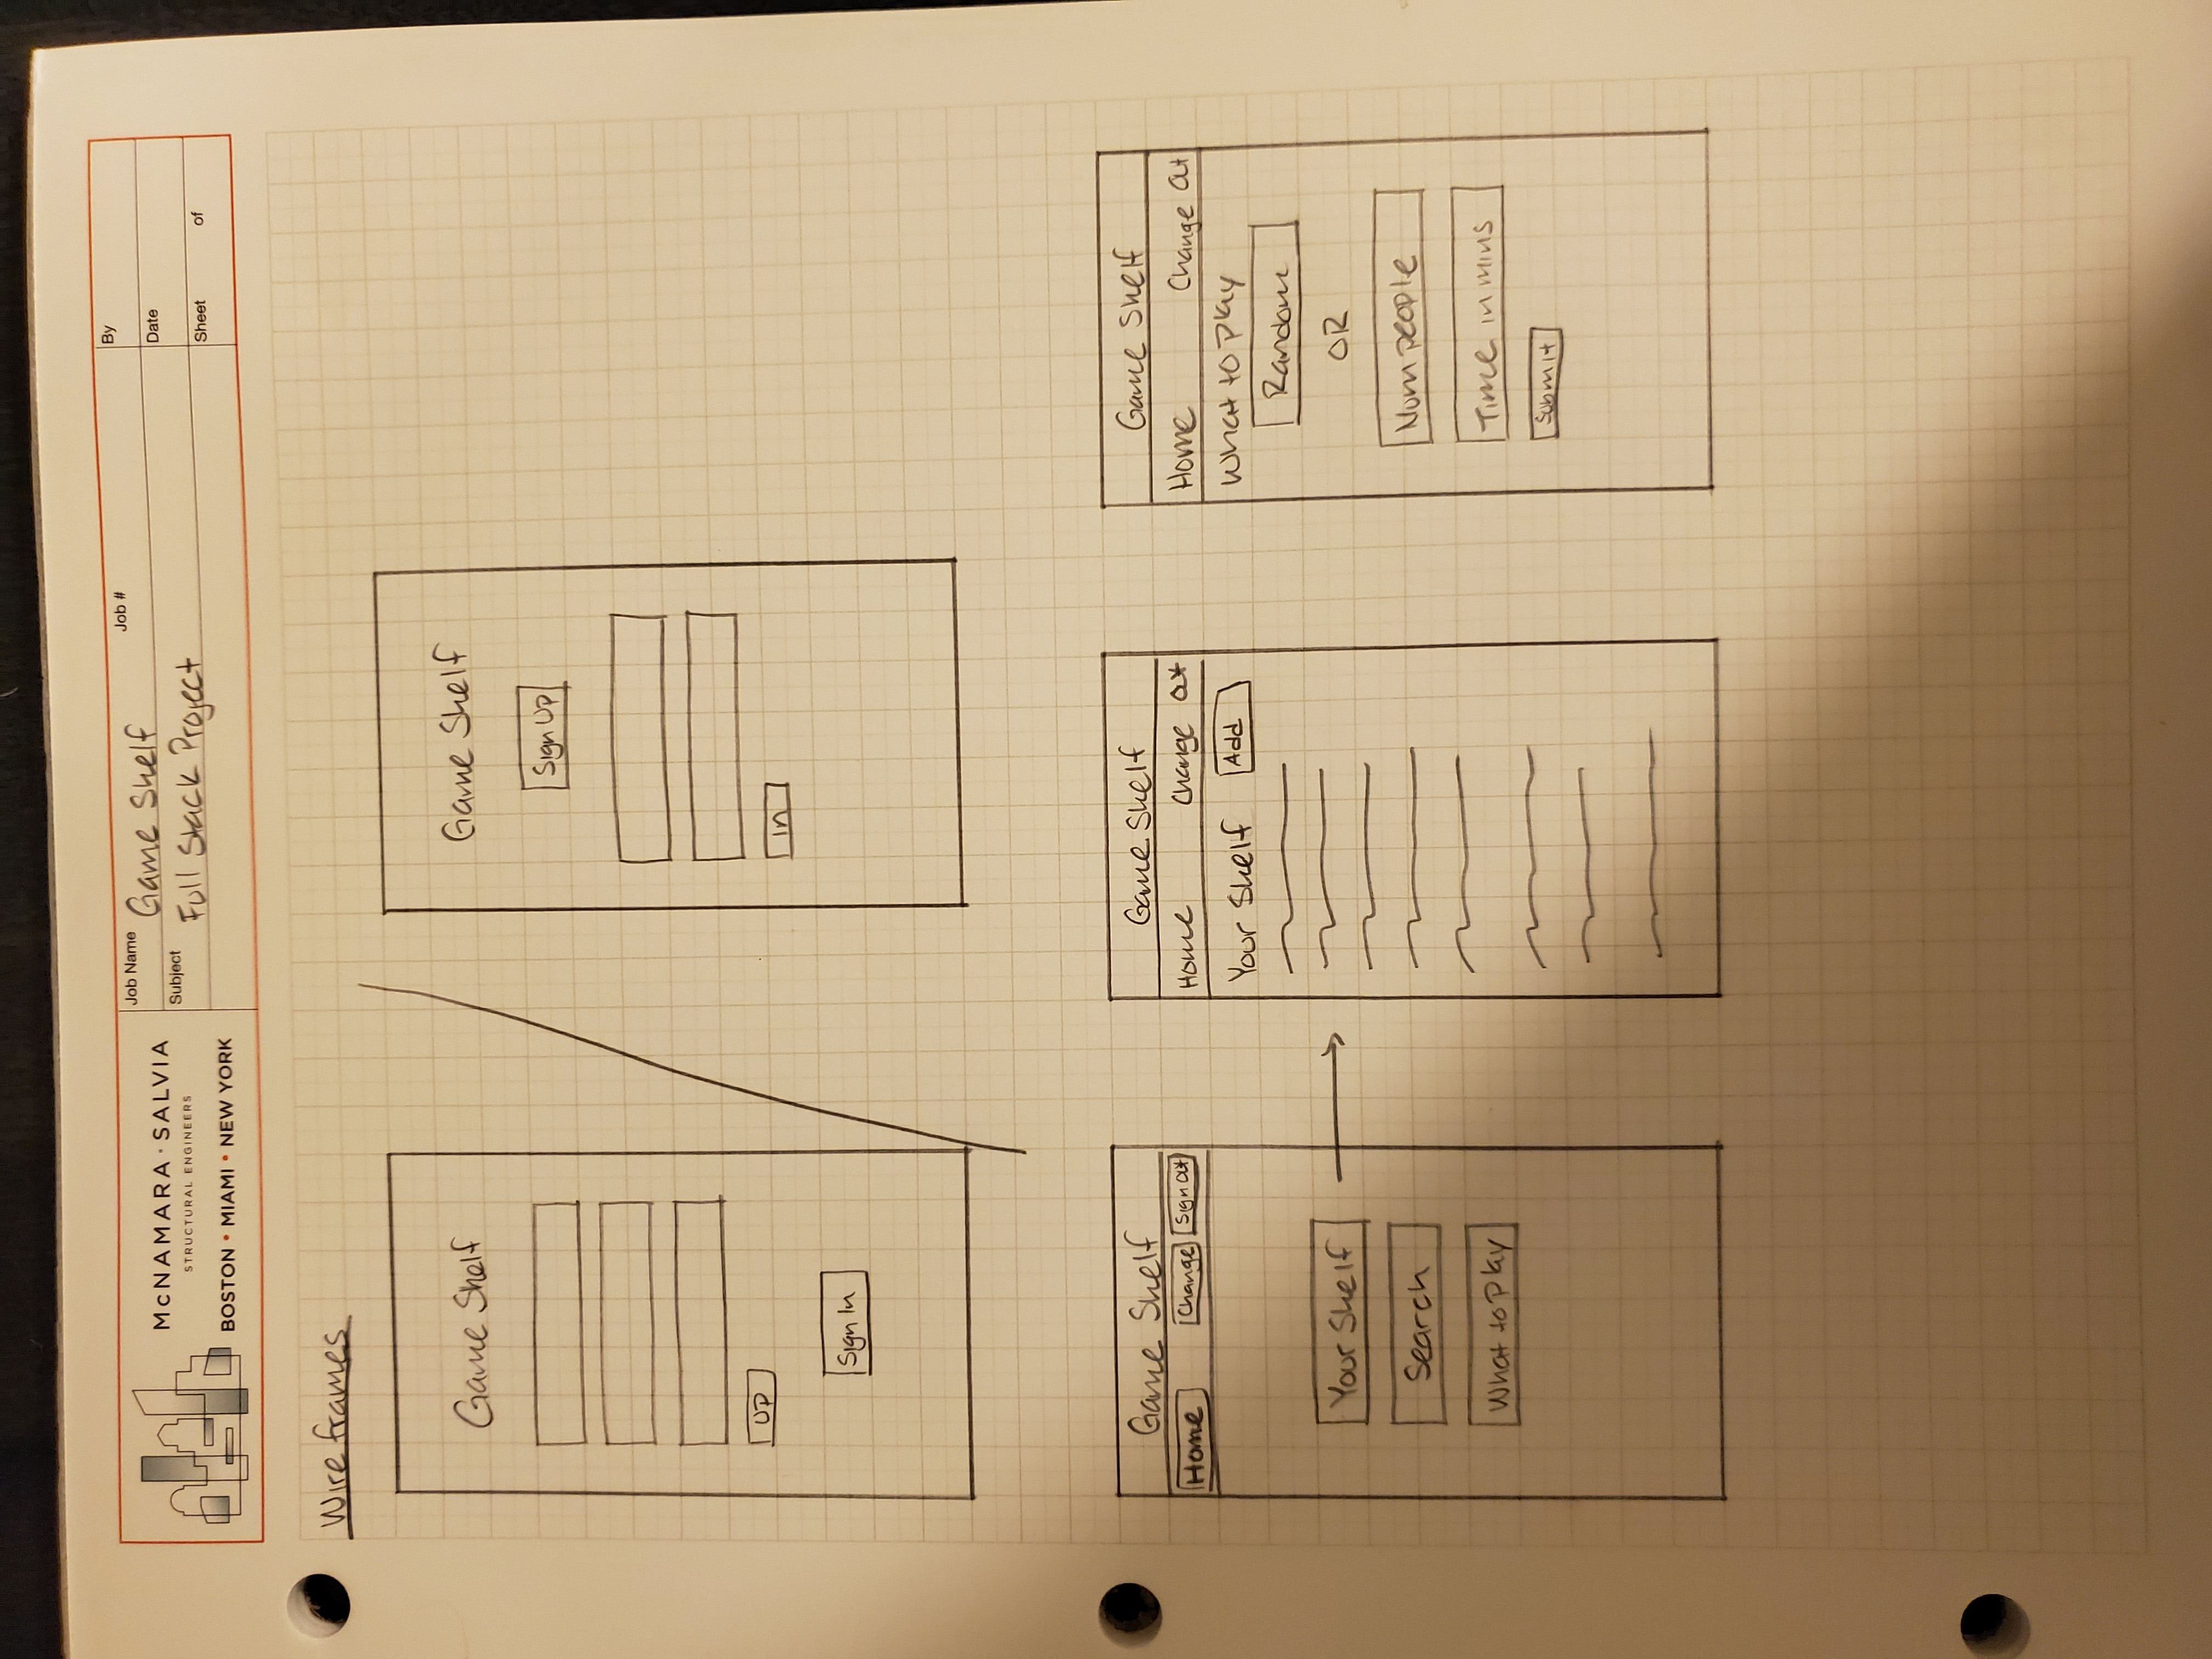 McNAMARA · SALVIA
STRUCTURAL ENGINEERS
BOSTON • MIAMI • NEW YORK
Job Name Game Shelf
Job #
Subject Full Stack Project
By
Date
Sheet of
Wire frames
Game Shelf
UP
Sign In
Game Shelf
Sign Up
In
Game Shelf
Home Change Sign Out
Your Shelf
Search
What to Play
Game Shelf
Home Change Out
Your Shelf Add
Game Shelf
Home Change Out
What to Play
Random
OR
Num people
Time in mins
Submit